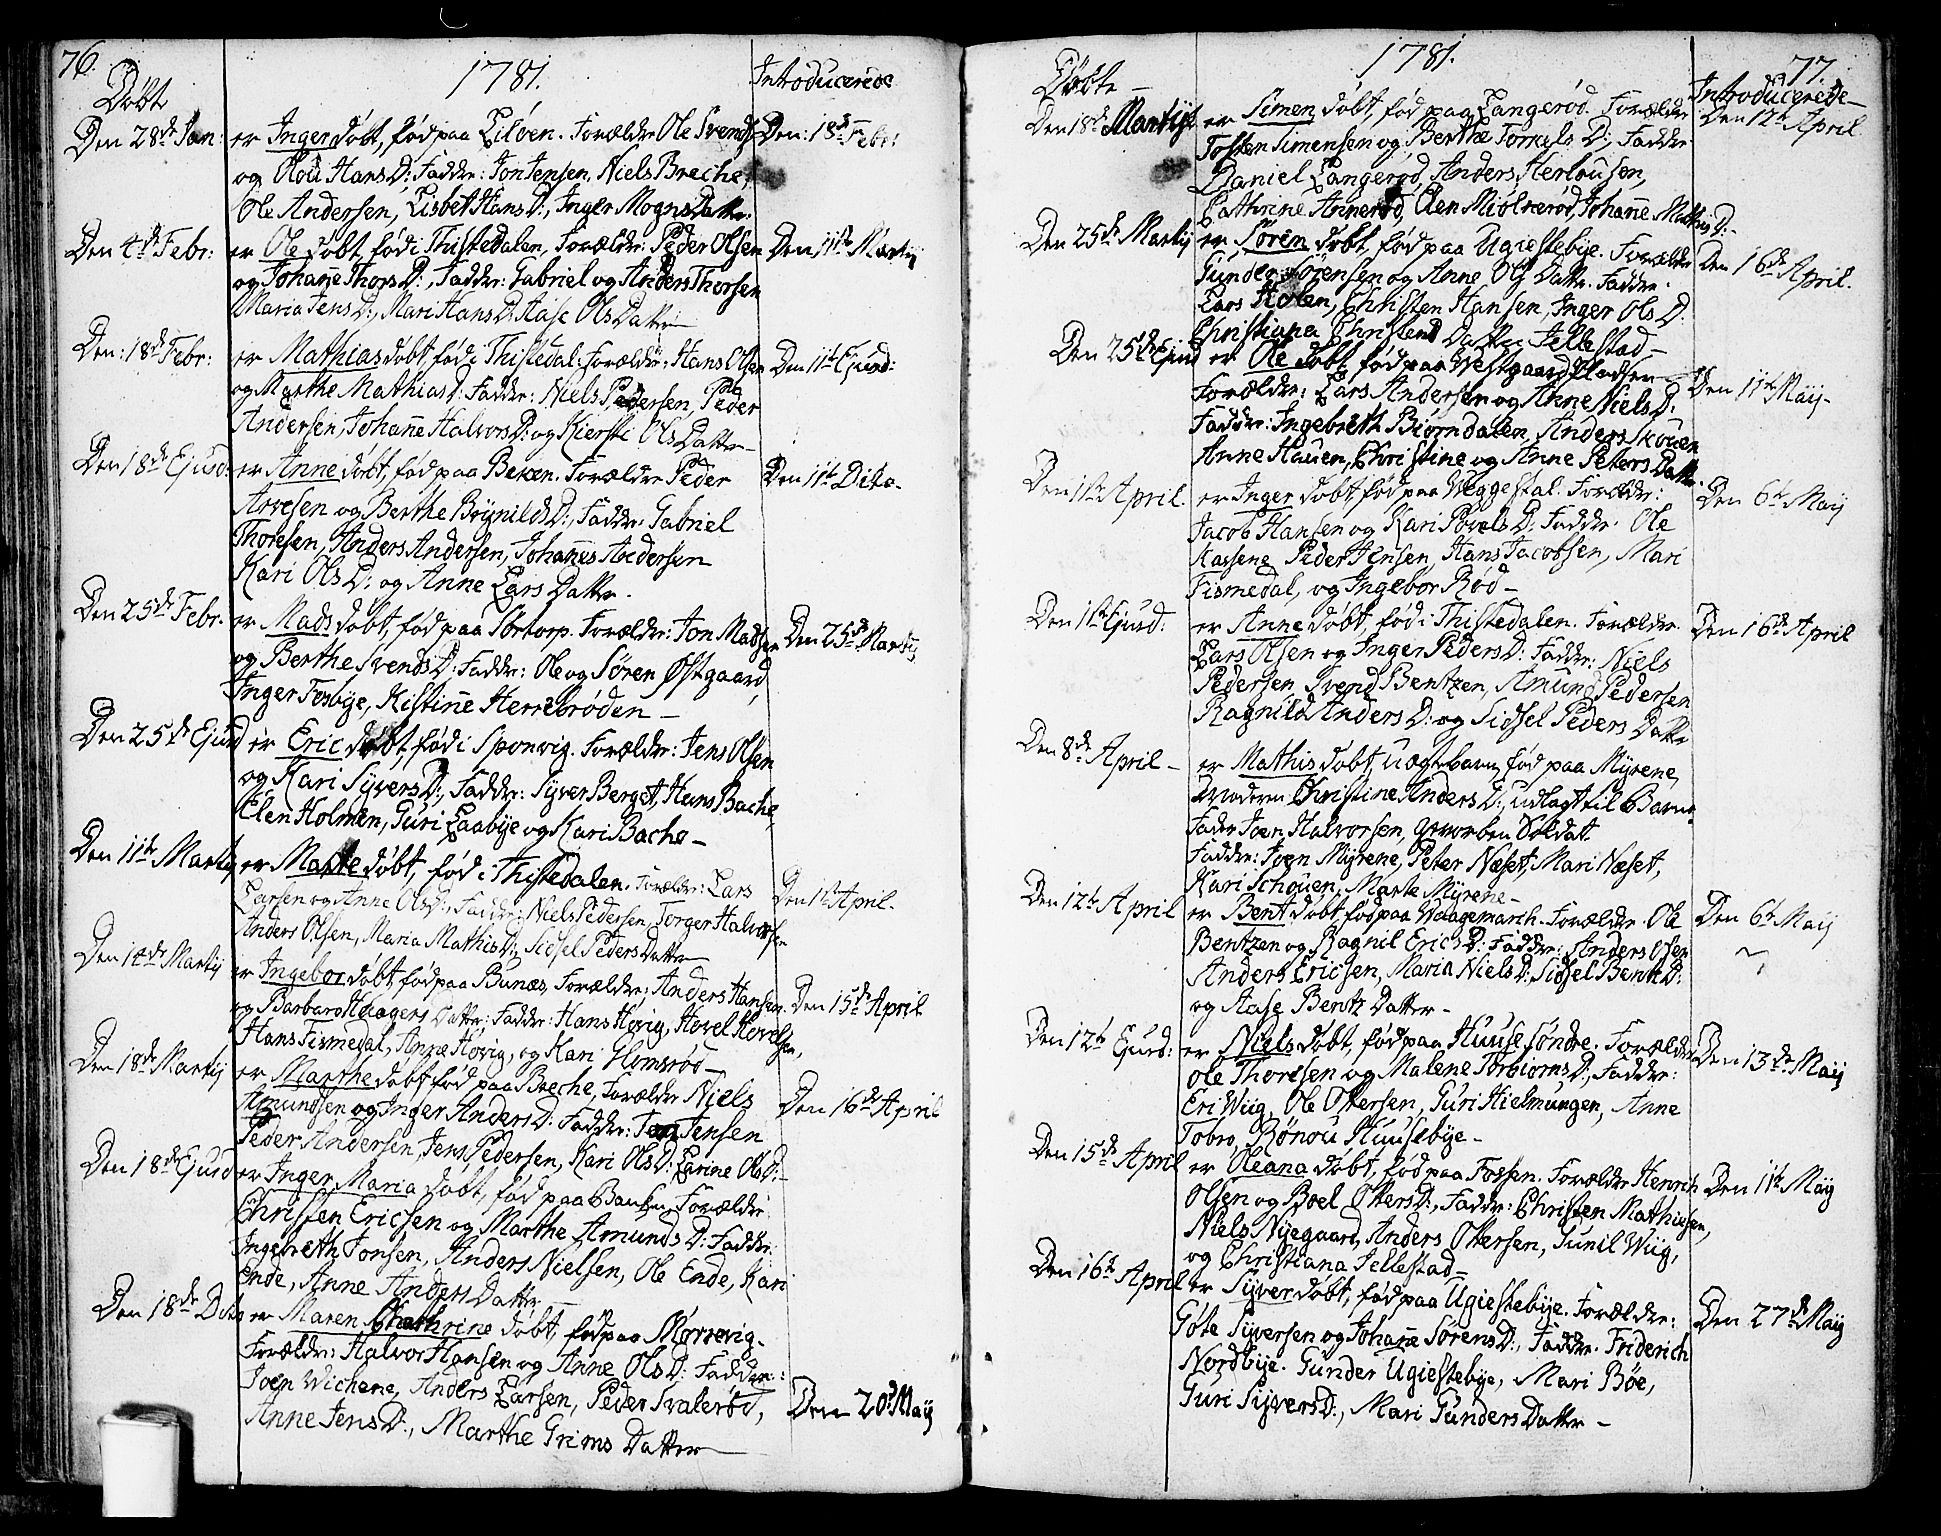 76.
Döbte
1781.
Introducerede
Den 28de Jan: er Inger döbt, föd paa Lilöen. Forældre Ole Svends: Den: 18de Febr:
og Olou Hans D: Faddre: Jon Jensen, Niels Breche,
Ole Andersen, Lisbet Hans D:, Inger Mogns Datter.
Den 4de Febr: er Ole döbt, föd i Thistedalen, Forældre: Peder Olsen Den 11te Martij
og Johañe Thors D:, Faddre: Gabriel og Anders Thorsen
Maria Jens D:, Mari Hans D: Aase Ols Datter
Den: 18de Febr: er Mathias döbt, föd i Thistedal: Forældre: Hans Olsen Den 11te Ejusd:
og Marthe Mathias D: Faddre: Niels Pedersen, Peder
Andersen, Johañe Halvors D: og Kiersti Ols Datter
Den 18de Ejusd: er Anne döbt, föd paa Beken. Forældre Peder Den 11te Dito.
Arvesen og Berthe Brynilds D:, Faddre: Gabriel
Thoresen, Anders Andersen, Johañes Andersen
Kari Ols D: og Anne Lars Datter.
Den 25de Febr. er Mads döbt, föd paa Sörtorp. Forældre: Jon Madsen Den 25de Martij
og Berthe Svends D: Faddre: Ole og Sören Østgaard,
Inger Fosbye, Kistiñe Herrebröden
Den 25de Ejusd er Eric döbt, föd i Sponvig. Forældre: Jens Olsen
og Kari Syvers D:, Faddre: Syver Berget, Hans Bache,
Elen Holmen, Guri Laabye og Kari Bache
Den 11te Martij er Marte döbt, föd i Thistedalen. Forældre: Lars Den 1ste April.
Larsen og Anne Ols D:, Faddre: Niels Pedersen, Torger Halvorsen
Anders Olsen, Maria Mathis D:, Sidsel Peders Datter
Den 14de Martij er Ingebor döbt, föd paa Bunæs, Forældre: Anders Hansen Den 15de April
og Barbara Haagens Datter: Faddre: Hans Hövig, Hovel Hovelsen,
Hans Tismedal, Anne Hövig, og Kari Homsröd
Den 18de Martij er Marthe döbt föd paa Breche, Forældre Niels Den 16de April
Amundsen og Inger Anders D: Faddre: Jon Jensen
Peder Andersen, Jens Pedersen, Kari Ols D: Karine Ols D:
Den 18de Ejusd er Inger Maria döbt, föd paa Banken, Forældre
Christen Ericsen og Marthe Amunds D: Faddre:
Ingebreth Jonsen, Anders Nielsen, Ole Ende, Kari
Ende, Anne Anders Datter
Den 18de Dito er Maren Cathrine döbt, föd paa Mörrevig.
Forældre: Halvor Hansen og Anne Ols D: Faddre:
Joen Wichene, Anders Larsen, Peder Svaleröd, Den 20de Maij
Anne Jens D:, Marthe Grims Datter
77.
Döbte
1781.
Introducerede
Den 18de Martij er Simen döbt, föd paa Langeröd. Forældre Den 12te April
Tosten Simensen og Berthe Torkels D:, Faddre
Daniel Langeröd, Anders Herlousen,
Cathrine Anneröd, Elen Miölneröd, Johañe Mathis D:
Den 25de Martij er Sören döbt, föd paa Ugiestebye. Forældre Den 16de April.
Gunder Sörensen og Anne Ols Datter. Faddre.
Lars Holen, Christen Hansen, Inger Ols D:
Christiana Christens Datter Tellestad
Den 25de Ejusd er Ole döbt, föd paa Westgaard Pladsen Den 11te Maij
Forældre: Lars Andersen og Anne Niels D:
Faddre: Ingebreth Biörndalen, Anders Skouen
Anne Hauen, Christine og Anne Peters Datter.
Den 1ste April. er Inger döbt, föd paa Weggestal. Forældre: Den 6te Maij
Jacob Hansen og Kari Povels D: Faddre: Ole
Kassene, Peder Jensen, Hans Jacobsen, Mari
Tismedal, og Ingebor Röd
Den 1ste Ejusd: er Anne döbt, föd i Thistedalen. Forældre Den 16de April
Lars Olsen og Inger Peders D: Faddre: Niels
Pedersen, Svend Bentzen, Amund Pedersen
Ragnild Anders D: og Sidsel Peders Datter
Den 8de April er Mathis döbt, uægte barn, föd paa Myrene,
Moderen Christine Anders D:, udlagt til Barne
Fader Joen Halvorsen, Gevorben Soldat.
Faddre: Joen Myrene, Peter Næset, Mari Næset,
Kari Schouen, Marte Myrene
Den 12te April er Bent döbt, föd paa Waagemarch. Forældre. Ole Den 6te Maij
Bentzen og Ragnil Erics D: Faddre: Anders Olsen
Anders Ericsen, Maria Niels D: Sidsel Bentz D:
og Aase Bentz Datter
Den 12te Ejusd: er Niels döbt, föd paa Huuse söndre. Forældre Den 13de Maij
Ole Thoresen og Malene Torbiörns D:, Faddre:
Eri Wiig, Ole Ottersen, Guri Hielmungen, Anne
Tobro, Rönou Huusebye
Den 15de April er Oleana döbt, föd paa Fossen. Forældre Henrich Den 11te Maij
Olsen og Boel Otters D:, Faddre: Christen Mathiesen,
Niels Nyegaard, Anders Ottersen, Gunil Wiig,
og Christiana Tellestad
Den 16te April er Syver döbt, föd paa Ugiestebye. Forældre: Den 27de Maij
Göte Syversen og Johañe Sörens D:, Faddre. Friderich
Nordbye. Gunder Ugiestebye, Mari Böe,
Guri Syvers D:, Mari Gunders Datter